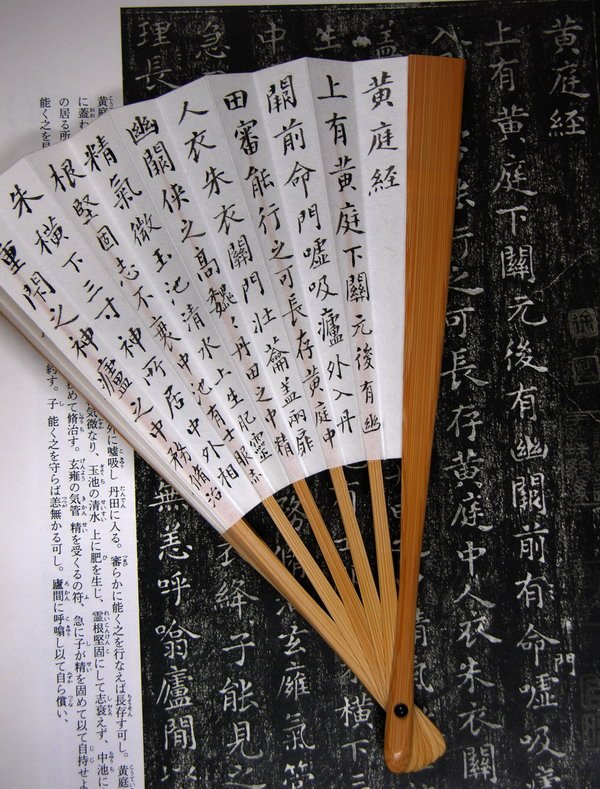 黄庭經
上有黄庭下關元後有幽
闕前命門噓吸廬外入丹
田審能行之可長存黄庭中
人衣朱衣關門壮蘥蓋兩扉
幽關侠之高巍〻丹田之中精
精氣微玉池清水上生肥靈
根堅固志不衰中池有士服
朱横下三寸神所居中外相
重閇之神廬之中務脩治
黄庭経
上有黄庭下關元後有幽關前有命門噓吸
入
行之可長存黄庭中人衣朱衣關
中
横下三
生
務脩治玄癰氣管
急
衣絳子能見之
理長
無恙呼噏廬間
黄庭
に嘘吸し 丹田に入る。審らかに能く之を行なえば長存す可し。黄庭
に蓋む
気微なり、玉池の清水 上に肥を生じ、霊根堅固にして志衰えず、中池に
の居る所
めて脩治す。玄雍の気管 精を受くるの符、急に子が精を固めて以て自持せよ
能く之を見
約す。子 能く之を守らば恙無かる可し。廬間に呼噏し以て自ら償い、